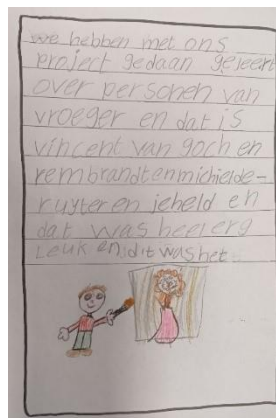 we hebben met ons
project gedaan geleert
over personen van
vroeger en dat is
vincent van goch en
rembrandt en michielde-
ruyter en jeheld en
dat was heel erg
leuk en dit was het